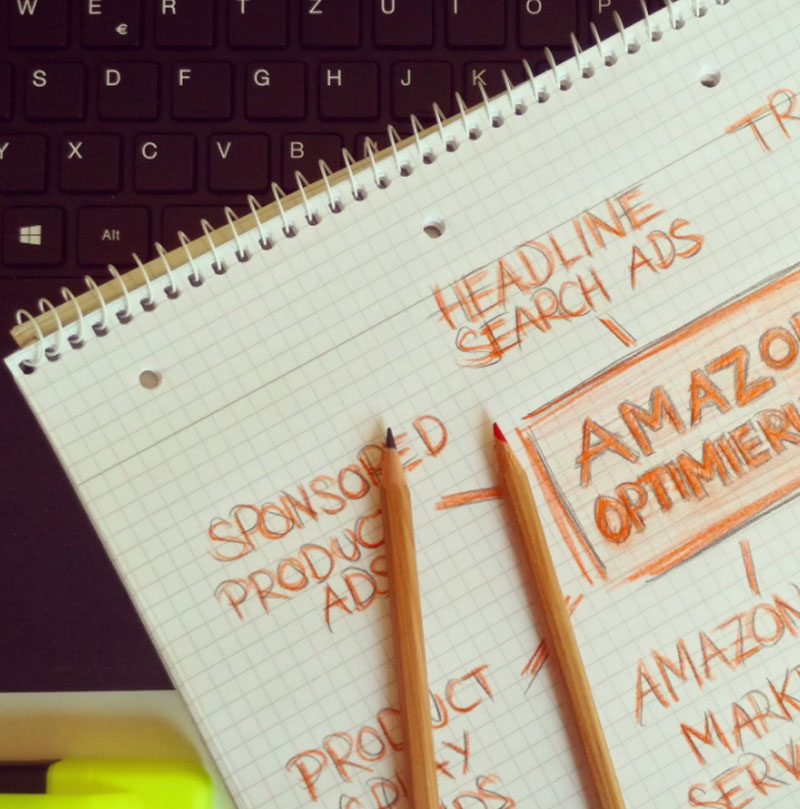 W E R T Z U I O P
€
S D F G H J K
Y X C V B N
Alt
TR
HEADLINE
SEARCH ADS
AMAZON
OPTIMIERU
SPONSORED
PRODUCT
ADS
AMAZON
MARKE
SERV
PRODUCT
DISPLAY
ADS